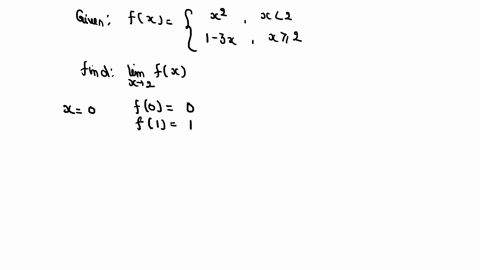 Given: f(x) = { x² , x < 2
1-3x , x ≥ 2
find: lim f(x)
x→2
x = 0 f(0) = 0
f(1) = 1